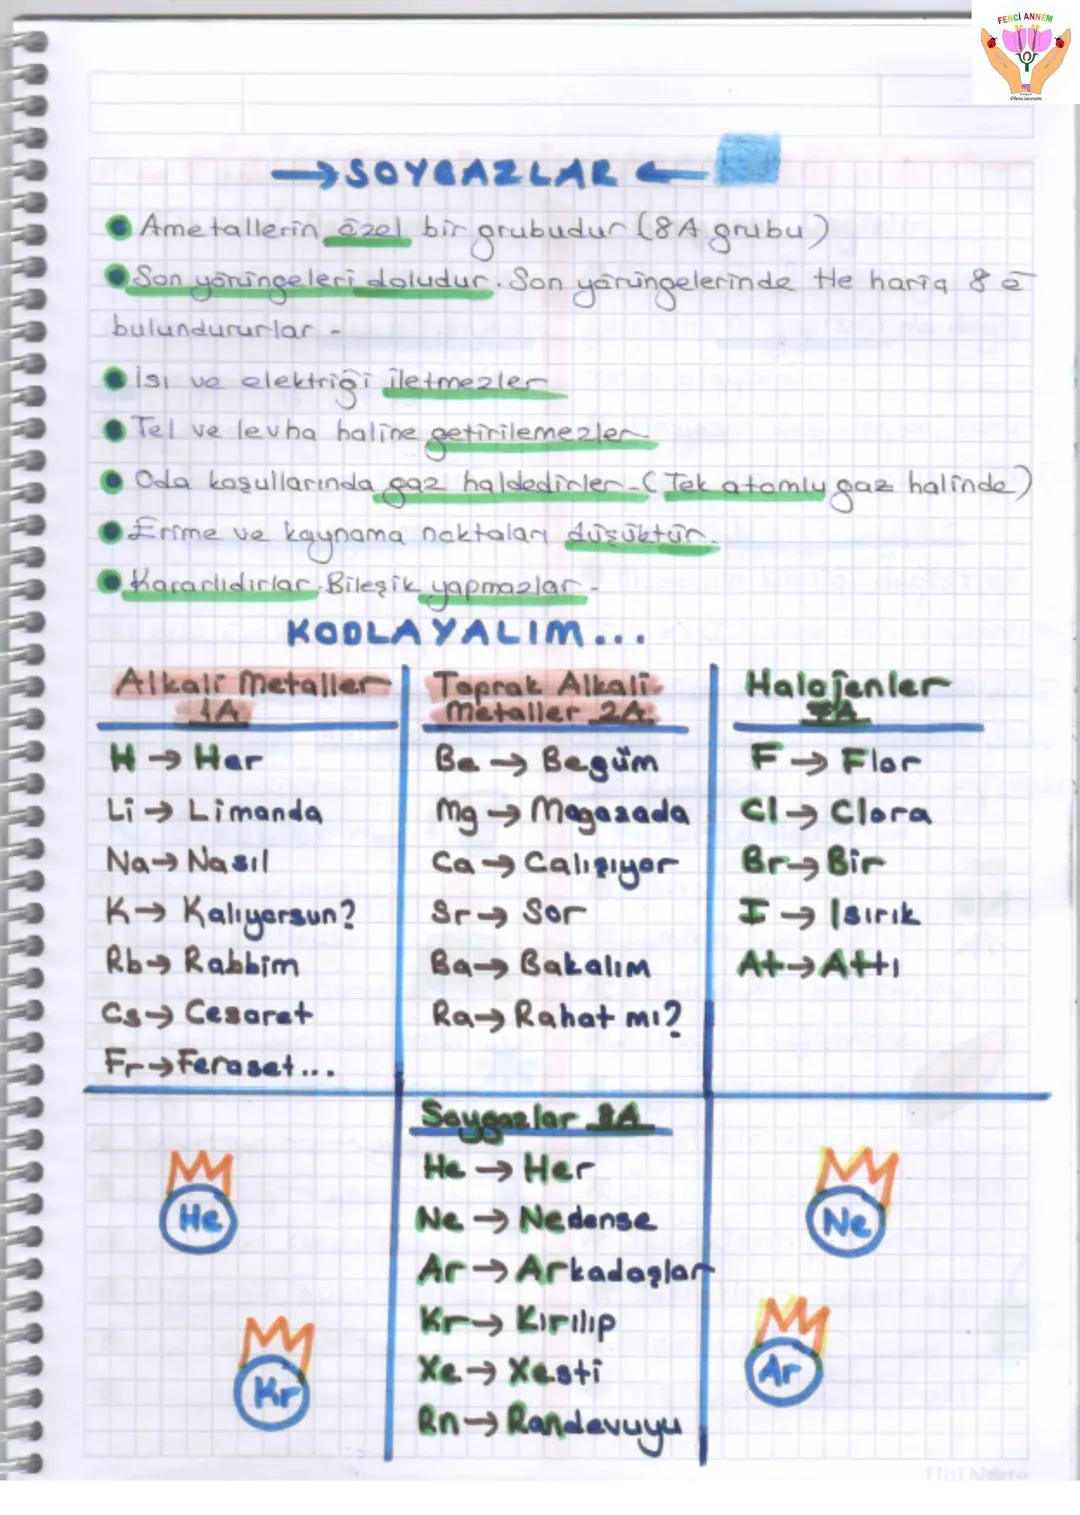 FENCİ ANNEM
@fenciannem
→SOYGAZLAR←
Ametallerin özel bir grubudur (8A grubu)
Son yörüngeleri doludur. Son yörüngelerinde He hariç 8 e
bulundururlar.
Isı ve elektriği iletmezler
Tel ve levha haline getirilemezler
Oda koşullarında gaz haldedirler. (Tek atomlu gaz halinde)
Erime ve kaynama noktaları düşüktür.
Kararlıdırlar. Bileşik yapmazlar.
KODLAYALIM...
Alkali Metaller
1A
H → Har
Li → Limanda
Na → Nasıl
K → Kalıyorsun?
Rb → Rabbim
Cs → Cesaret
Fr → Feraset...
Toprak Alkali
Metaller 2A.
Be → Begüm
Mg → Magazada
Ca → Calışıyor
Sr → Sor
Ba → Bakalım
Ra → Rahat mı?
Halojenler
7A
F → Flor
Cl → Clora
Br → Bir
I → Isırık
At → Attı
Soygazlar 8A
He → Her
Ne → Nedense
Ar → Arkadaşlar
Kr → Kırılıp
Xe → Xesti
Rn → Randevuyu
He
Kr
Ne
Ar